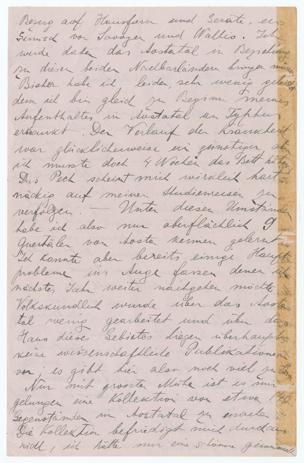 Bezug auf Hausform und Geräte, ein
Gemisch von Savoyen und Wallis. Ich
werde daher das Aostatal in Beziehung
zu diesen beiden Nachbarländern bringen müssen.
Bisher habe ich leider sehr wenig
dem ich bin gleich zu Beginn meines
Aufenthaltes im Aostatal an Typhus
erkrankt. Der Verlauf der Krankheit
war glücklicherweise ein günstiger, aber
ich musste doch 4 Wochen das Bett hüten.
Das Pech scheint mich wirklich hart-
näckig auf meinen Studienreisen zu
verfolgen. — Unter diesen Umständen
habe ich also nur oberflächlich 9
Quertäler von Aosta kennen gelernt.
Ich konnte aber bereits einige Haupt-
probleme ins Auge fassen denen ich
nächstes Jahr weiter nachgehen möchte.
Volkskundlich wurde über das Aosta-
tal wenig gearbeitet und über das
Haus dieses Gebietes liegen überhaupt
keine wissenschaftliche Publikationen
vor; es gibt hier also noch viel zu
Nur mit grosster Mühe ist es mir
gelungen eine Kollektion von etwa 140
Gegenständen im Aostatal zu
Die Kollektion befriedigt mich durchaus
nicht, ich hätte nur eine schöne